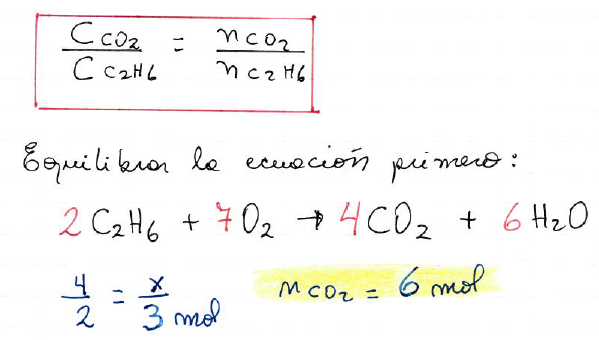 C CO₂ / C C₂H₆ = n CO₂ / n C₂H₆
Equilibrar la ecuación primero:
2 C₂H₆ + 7 O₂ → 4 CO₂ + 6 H₂O
4/2 = x/3 mol n CO₂ = 6 mol